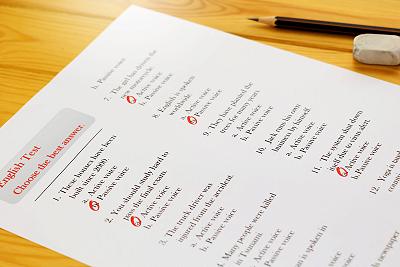 English Test
Choose the best answer.
1. These houses have been
built since 2000.
a. Active voice
b. Passive voice
2. You should study hard to
pass the final exam.
a. Active voice
b. Passive voice
3. The truck driver was
injured from the accident.
a. Active voice
b. Passive voice
4. Many people were killed
in Tsunami.
a. Active voice
b. Passive voice
is spoken in
b. Passive voice
7. The girl has driven the
new motorcycle.
a. Active voice
b. Passive voice
8. English is spoken
worldwide.
a. Active voice
b. Passive voice
9. They have planted the
trees for many years.
a. Active voice
b. Passive voice
10. Jack runs his own
business by himself.
a. Active voice
b. Passive voice
11. The system shut down
is due to virus alert.
a. Active voice
b. Passive voice
12. Yoga is
newspaper
voice